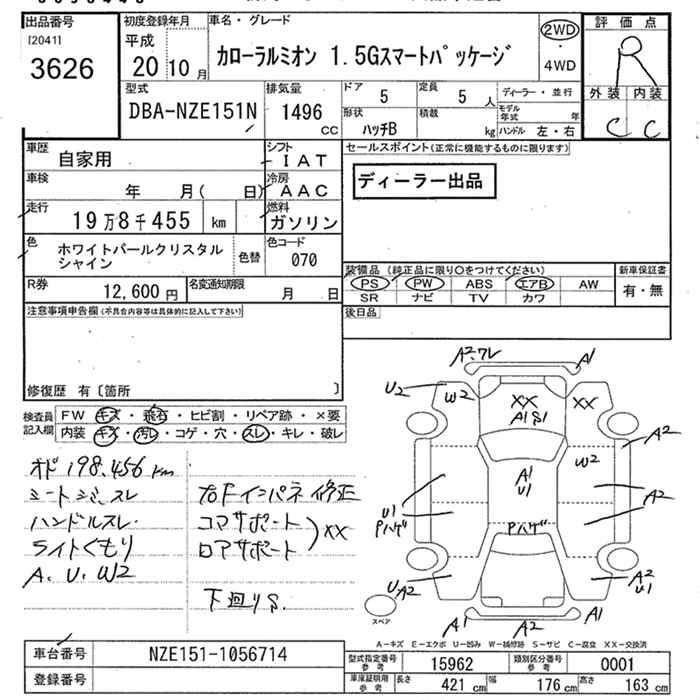 出品番号
[2041]
3626
初度登録年月
平成
20 10月
車名・グレード
カローラルミオン 1.5Gスマートパッケージ
2WD
・
4WD
評価点
R
外装 内装
C C
型式
DBA-NZE151N
排気量
1496
cc
ドア
5
定員
5 人
形状
ハッチB
積載
kg
ディーラー・並行
モデル年式 年
ハンドル 左・右
車歴
自家用
シフト
IAT
車検
年 月( 日)
冷房
AAC
走行
19万8千455 km
燃料
ガソリン
色
ホワイトパールクリスタル
シャイン
色替
色コード
070
R券
12,600円
名変通知期限
月 日
セールスポイント(正常に機能するものに限ります)
ディーラー出品
装備品(純正品に限り〇をつけてください)
PS PW ABS エアB AW
SR ナビ TV カワ
新車保証書
有・無
後日品
注意事項申告欄(不具合内容等は具体的に記入して下さい)
修復歴 有〔箇所 〕
検査員
記入欄
FW キズ・飛石・ヒビ割・リペア跡・×要
内装 キズ・汚レ・コゲ・穴・スレ・キレ・破レ
オド198.456km
シートシミ、スレ
ハンドルスレ
ライトくもり
A、U、W2
右Fインパネ修正
コアサポート
ロアサポート
XX
下廻りS.
A2.ワレ
A1
U2
W2
XX
A1 S1
XX
A2
W2
A1
U1
U1
Pハゲ
A2
Pハゲ
U
A2
A2
U1
A1
A2
A1
スペア
A-キズ E-エクボ U-凹み W-補修跡 S-サビ C-腐食 XX-交換済
車台番号
NZE151-1056714
登録番号
型式指定番号
参考
15962
類別区分番号
参考
0001
車庫証明用
参考
長さ
421 cm
幅
176 cm
高さ
163 cm